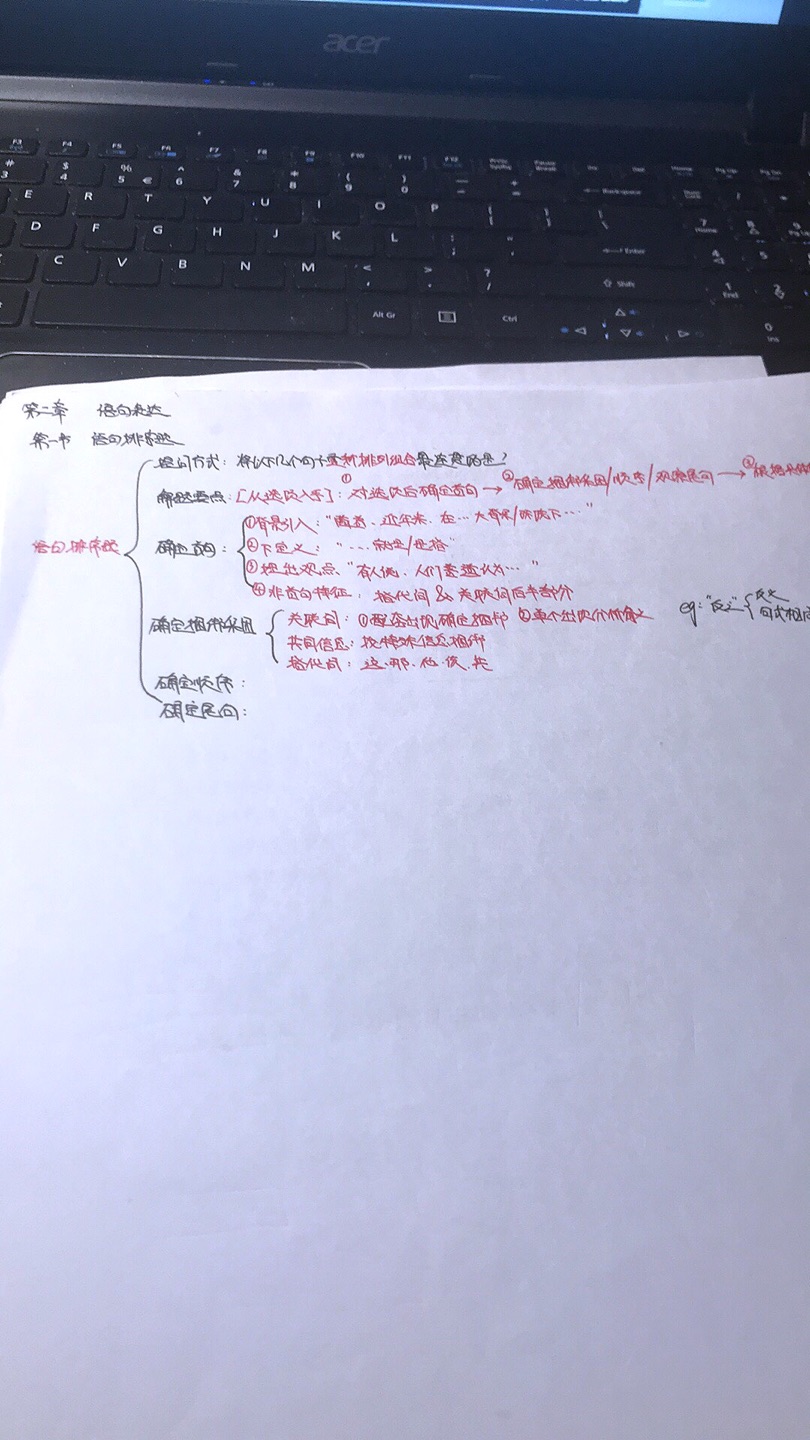 acer
F3 F4 F5 F6 F7 F8 F9 F10 F11 F12
# 3 $ 4 % 5 € ^ 6 & 7 * 8 ( 9 ) 0 — + = Backspace
E R T Y U I O P [ ] \ 7 Home
D F G H J K L : ; Enter 4 5
C V B N M < , > . ? / Shift 1 End 2
Alt Gr Ctrl 0 Ins
第二章 语句表达
第一节 语句排序题
语句排序题
提问方式：将以下几个句子重新排列组合最连贯的是？
解题要点：[从选项入手]：①对选项后确定首句→②确定捆绑集团/顺序/观察尾句→③根据
确定首句：①背景引入："随着、近年来、在…大背景/环境下…"
②下定义："…就是/是指"
③提出观点："有人说、人们普遍认为…"
④非首句特征：指代词&关联词后半部分
确定捆绑集团
关联词：①配套出现确定捆绑 ②单个出现分析含义
eg："反之" 反义
句式相同
共同信息：找特殊信息捆绑
指代词：这、那、他、该、其
确定顺序：
确定尾句：